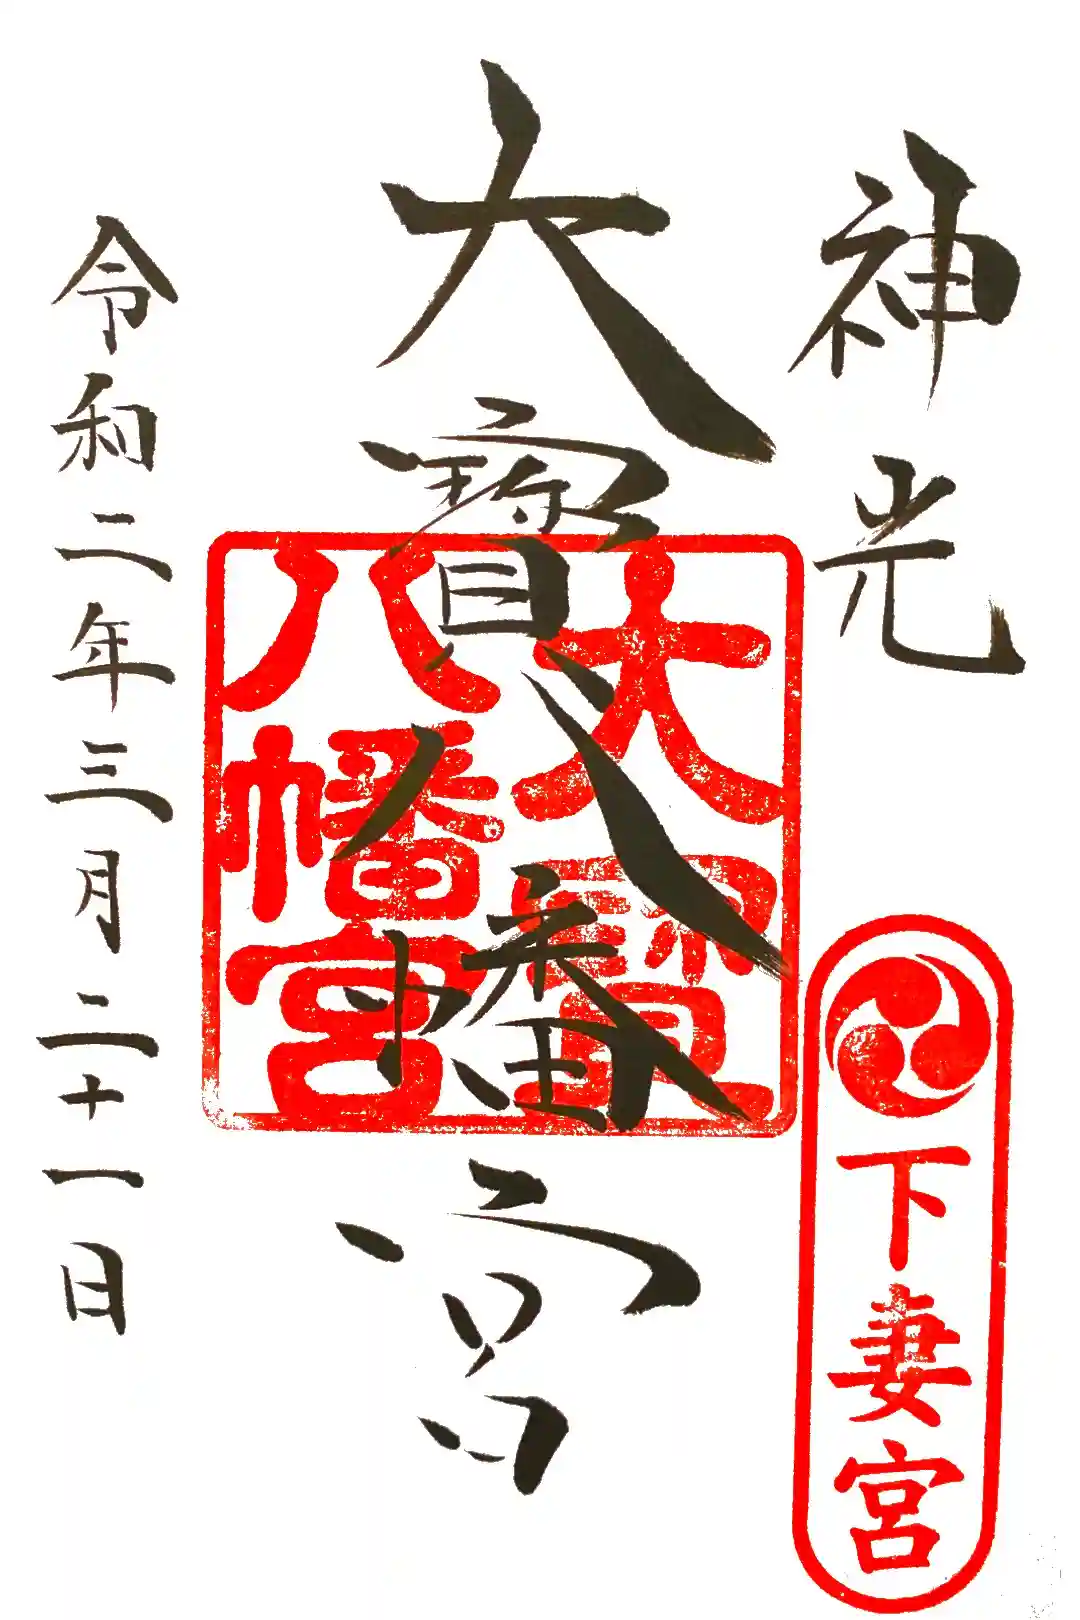 神光
下妻宮
大寳八幡宮
大寳
八幡宮
令和二年三月二十一日